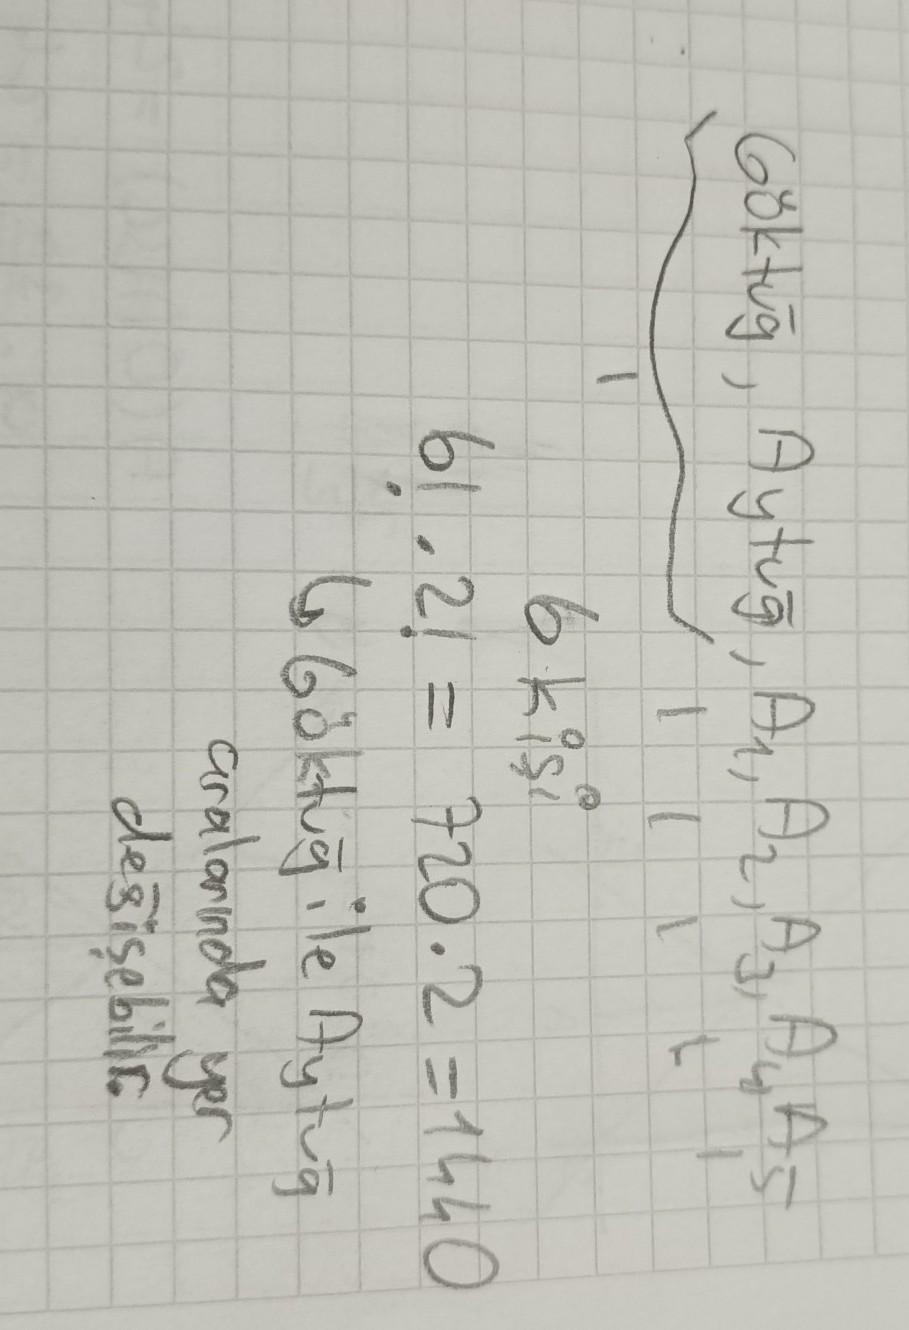 Göktuğ, Aytuğ, A1, A2, A3, A4 A5
1 1 1 1 1 1
6 kişi
6! . 2! = 720 . 2 = 1440
↳ Göktuğ ile Aytuğ
aralarında yer
değişebilir.